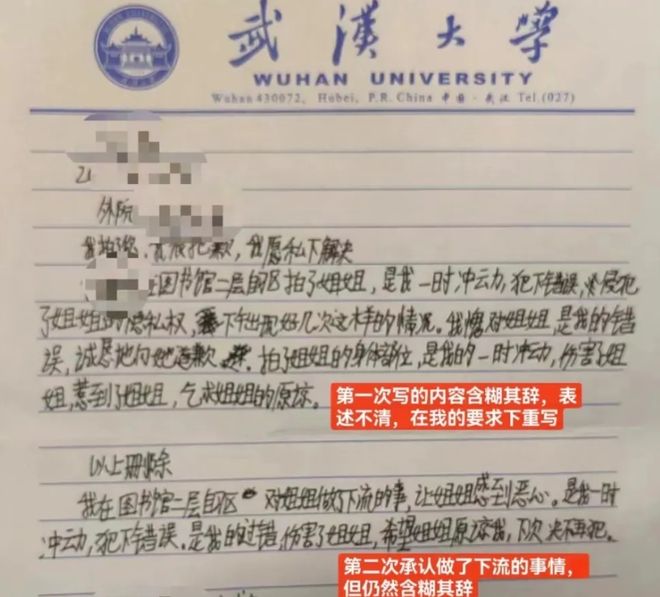 武漢大學
WUHAN UNIVERSITY
Wuhan 430072, Hubei, P.R. China 中国·武汉 Tel.(027)
外院
我抱歉,很抱歉,我愿私下解决
在图书馆二层自区拍了姐姐,是我一时冲云力,犯下错误,侵犯
了姐姐的隐私权,下午出现好几次这样的情况。我愧对姐姐,是我的错
误,诚恳地向她道歉,拍了姐姐的身体部位,是我的一时冲动,伤害了姐
姐,惹到了姐姐,乞求姐姐的原谅。
第一次写的内容含糊其辞,表
述不清,在我的要求下重写
以上删除
我在图书馆二层自区对姐姐做了下流的事,让姐姐感到恶心。是我一时
冲云力,犯下错误。是我的过错,伤害了姐姐,希望姐姐原谅我,下次决不再犯。
第二次承认做了下流的事情,
但仍然含糊其辞